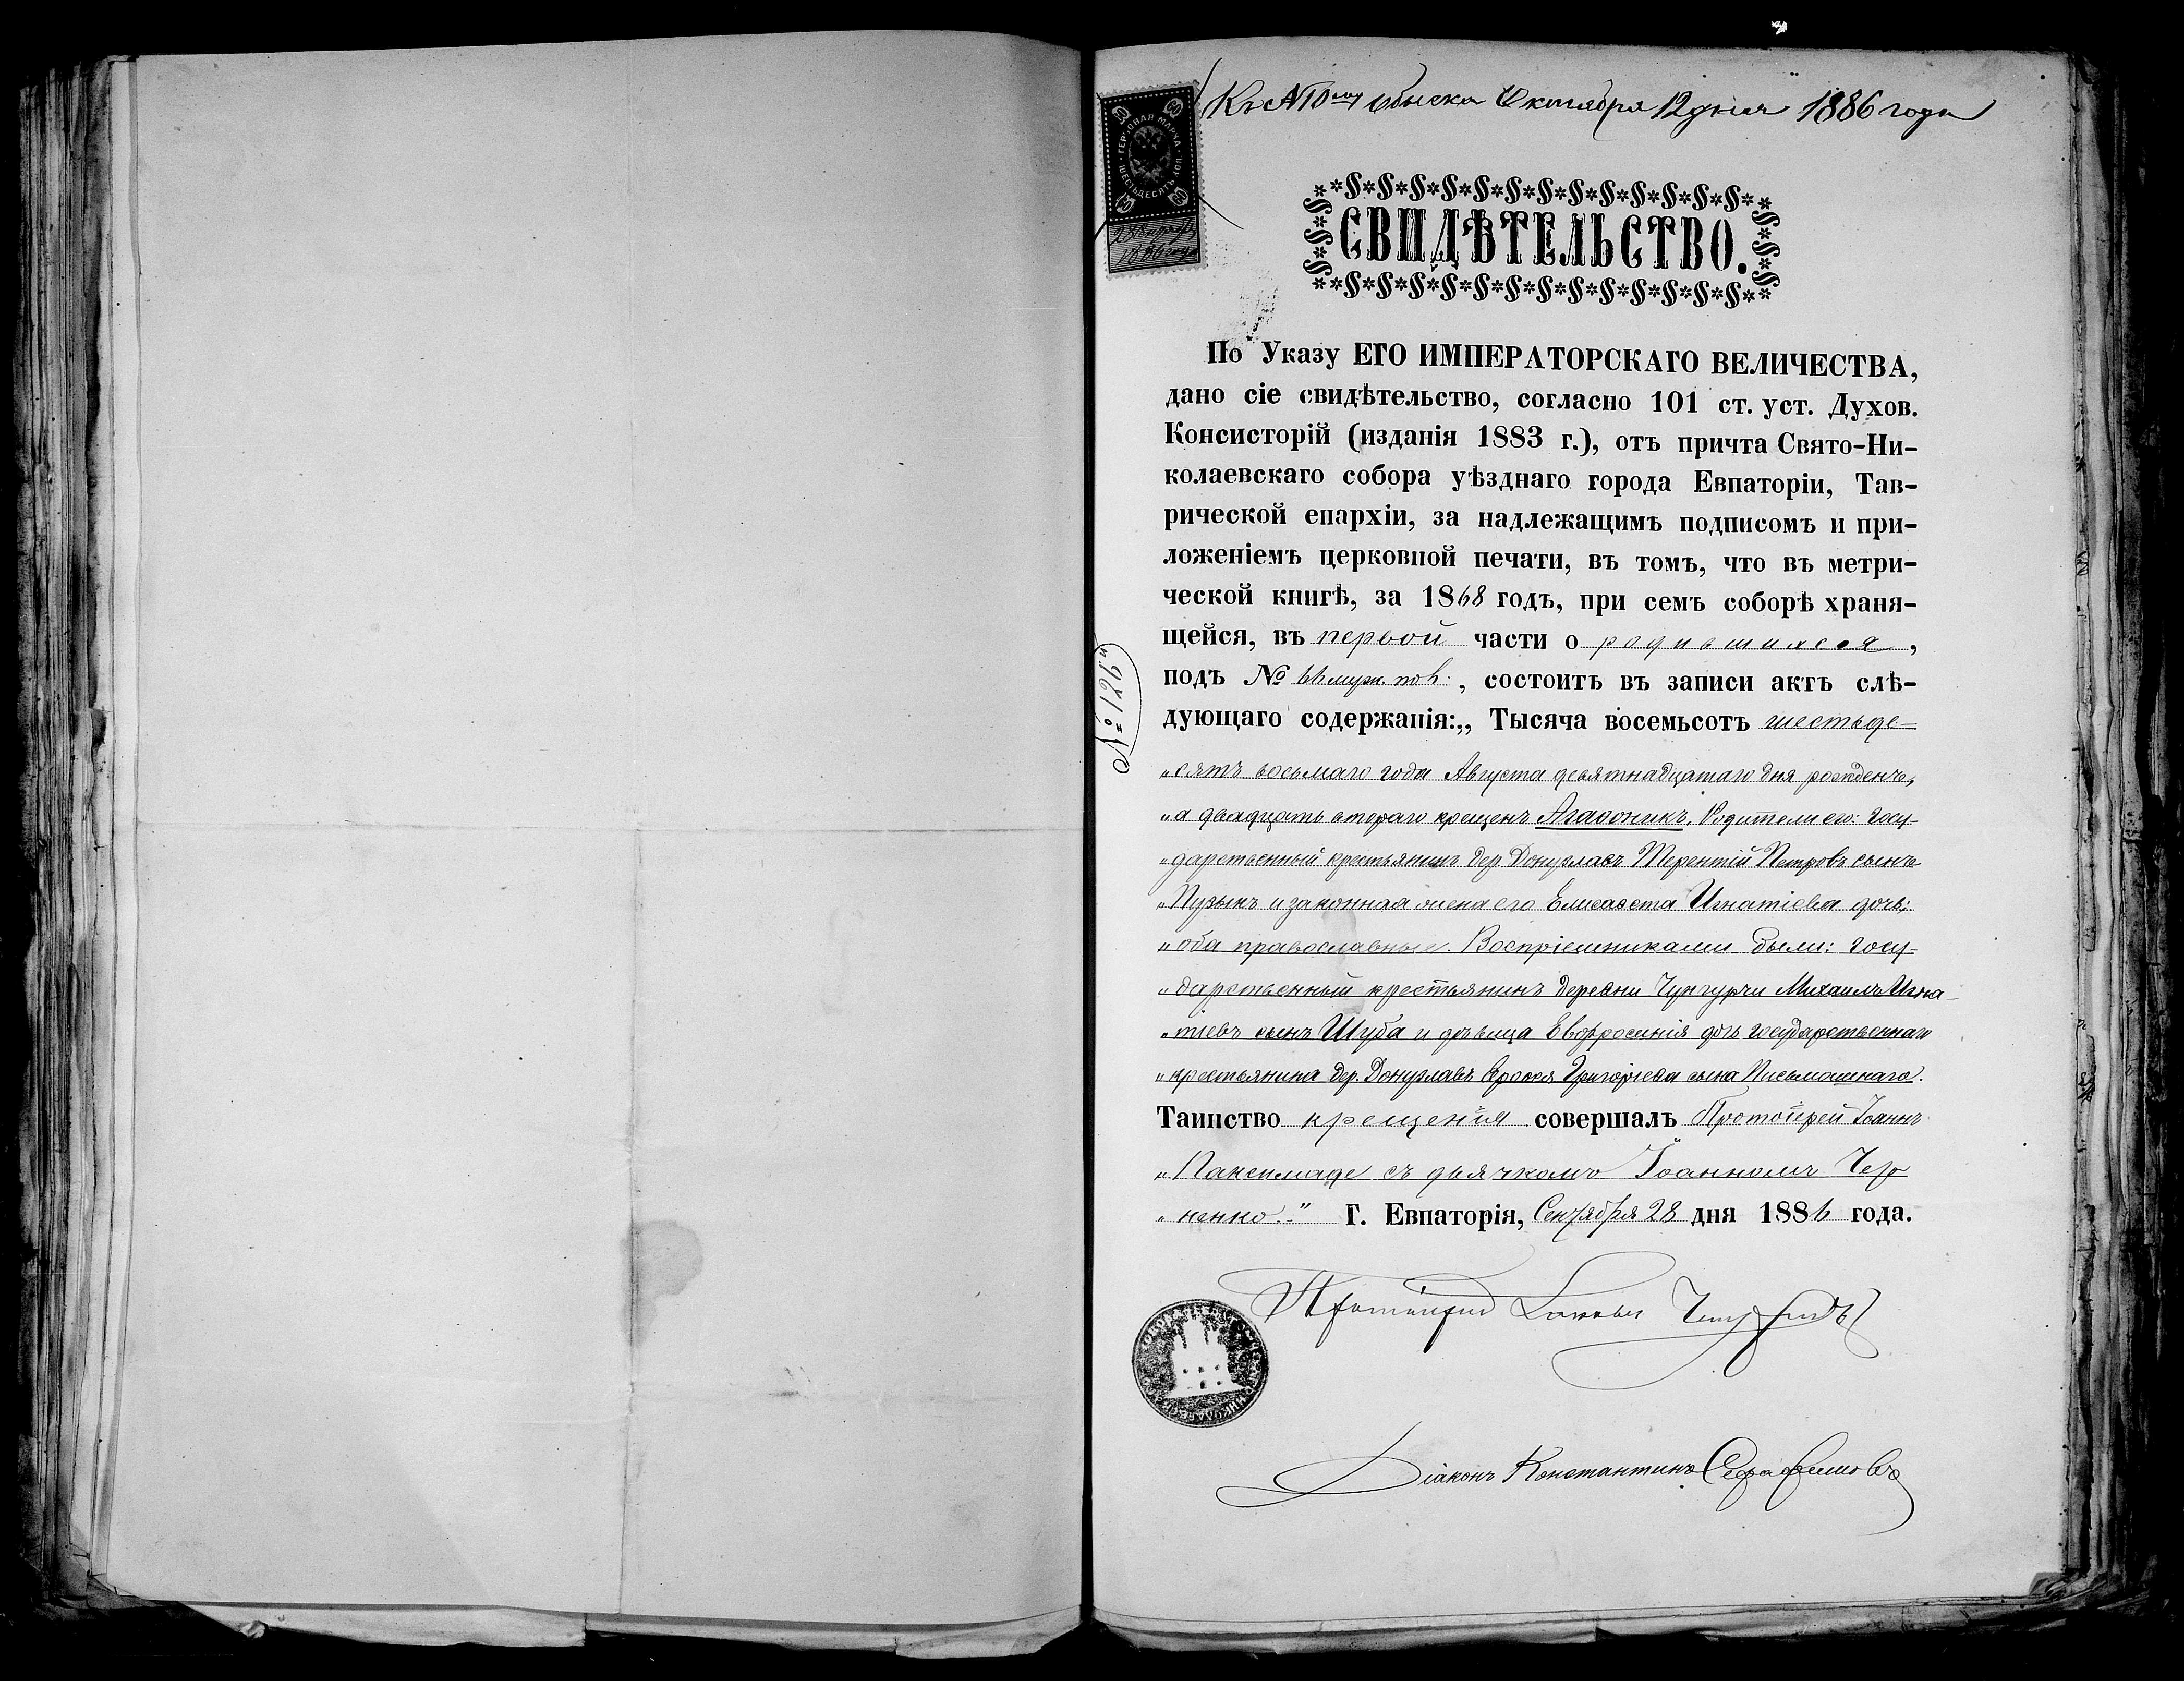 Къ №10му обыска Октября 12 дня 1886 года
60 60
ГЕРБОВАЯ МАРКА
ШЕСТЬДЕСЯТЪ КОП.
60 60
28 Сентября
1886 года
СВИДѢТЕЛЬСТВО.
По Указу ЕГО ИМПЕРАТОРСКАГО ВЕЛИЧЕСТВА,
дано сіе свидѣтельство, согласно 101 ст. уст. Духов.
Консисторій (изданія 1883 г.), отъ причта Свято-Ни-
колаевскаго собора уѣзднаго города Евпаторіи, Тав-
рической епархіи, за надлежащимъ подписомъ и при-
ложеніемъ церковной печати, въ томъ, что въ метри-
ческой книгѣ, за 1868 годъ, при семъ соборѣ храня-
щейся, въ первой части о родившихся,
подъ № муж. пол., состоитъ въ записи актъ слѣ-
дующаго содержанія:„ Тысяча восемьсотъ шестьде-
„сятъ восьмаго года Августа девятнадцатаго дня рожденъ,
„а двадцать втораго крещенъ Агаѳоникъ. Родители его: госу-
„дарственный крестьянинъ дер. Донузлавъ Терентій Петровъ сынъ
„Пузынъ и законная жена его Елисавета Игнатіева дочь;
„оба православные. Воспріемниками были: госу-
„дарственный крестьянинъ деревни Чунгурчи Михаилъ Игна-
„тіевъ сынъ Шуба и дѣвица Евфросинія дочь государственнаго
„крестьянина дер. Донузлавъ Ерофея Григоріева сына Письмашнаго.
Таинство крещенія совершалъ Протоіерей Іоаннъ
„Паксимаде съ дьячкомъ Іоанномъ Чер
„ненко.." Г. Евпаторія, Сентября 28 дня 1886 года.
№ 1126
Протоіерей
Діаконъ Константинъ Серафимовъ